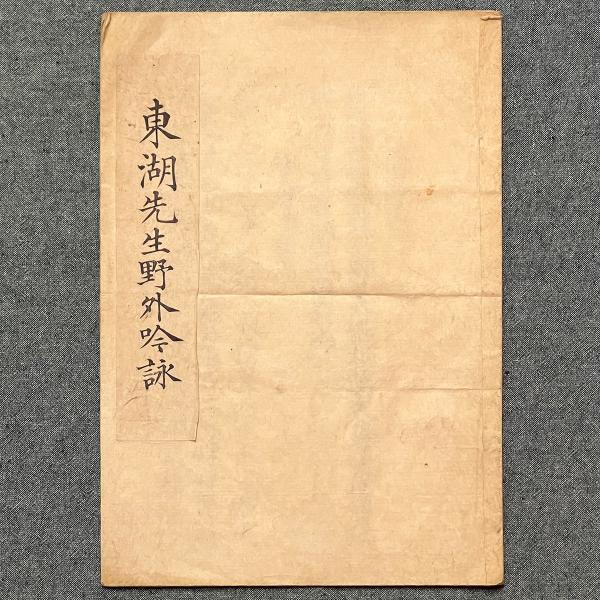 東湖先生野外吟詠